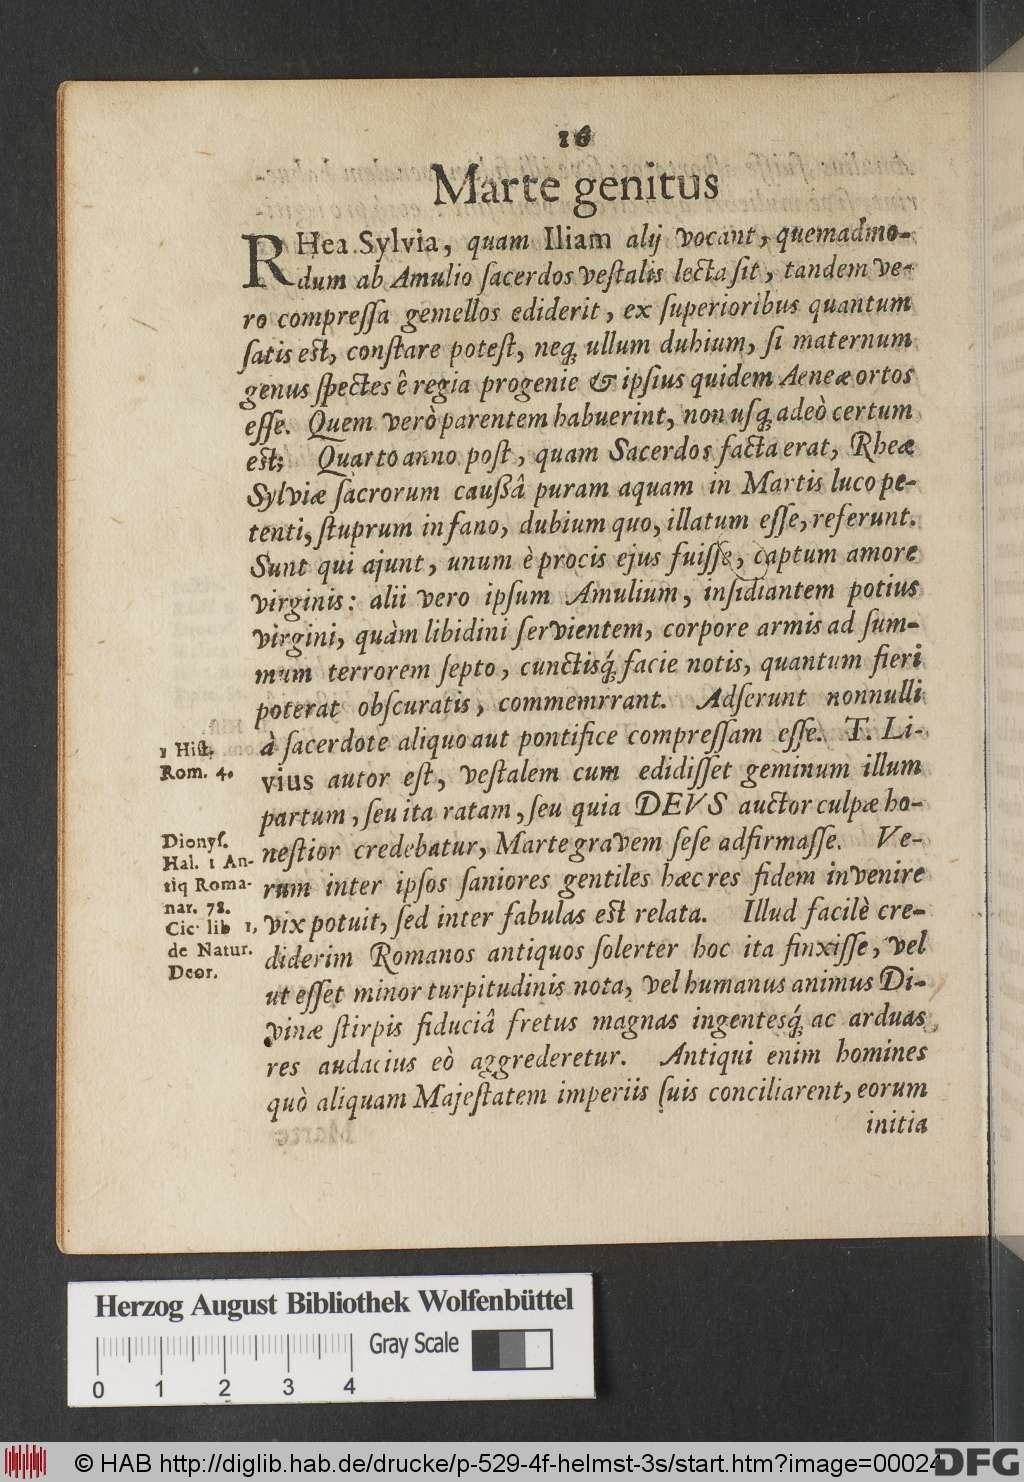 16
Marte genitus
RHea Sylvia, quam Iliam alij vocant, quemadmo-
dum ab Amulio ſacerdos veſtalis lecta ſit, tandem ve-
ro compreſſa gemellos ediderit, ex ſuperioribus quantum
ſatis eſt, conſtare poteſt, neq; ullum dubium, ſi maternum
genus ſpectes ê regia progenie & ipſius quidem Aeneæ ortos
eſſe. Quem verò parentem habuerint, non uſq; adeò certum
eſt; Quarto anno poſt, quam Sacerdos facta erat, Rheæ
Sylviæ ſacrorum cauſſâ puram aquam in Martis luco pe-
tenti, ſtuprum in fano, dubium quo, illatum eſſe, referunt.
Sunt qui ajunt, unum è procis ejus fuiſſe, captum amore
virginis: alii vero ipſum Amulium, inſidiantem potius
virgini, quàm libidini ſervientem, corpore armis ad ſum-
mum terrorem ſepto, cunctisq́; facie notis, quantum fieri
poterat obſcuratis, commemrrant. Adſerunt nonnulli
à ſacerdote aliquo aut pontifice compreſſam eſſe. T. Li-
vius autor eſt, veſtalem cum edidiſſet geminum illum
partum, ſeu ita ratam, ſeu quia DEVS auctor culpæ ho-
neſtior credebatur, Marte gravem ſeſe adfirmaſſe. Ve-
rum inter ipſos ſaniores gentiles hæc res fidem invenire
vix potuit, ſed inter fabulas eſt relata. Illud facilè cre-
diderim Romanos antiquos ſolerter hoc ita finxiſſe, vel
ut eſſet minor turpitudinis nota, vel humanus animus Di-
vinæ ſtirpis fiduciâ fretus magnas ingentesq́; ac arduas
res audacius eò aggrederetur. Antiqui enim homines
quò aliquam Majeſtatem imperiis ſuis conciliarent, eorum
initia
1 Hiſt.
Rom. 4.
Dionyſ.
Hal. 1 An-
tiq Roma-
nar. 78.
Cic. lib 1,
de Natur.
Deor.
Herzog August Bibliothek Wolfenbüttel
Gray Scale
0 1 2 3 4
© HAB http://diglib.hab.de/drucke/p-529-4f-helmst-3s/start.htm?image=00024
DFG